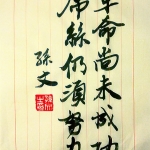 革命尚未成功
屌絲仍須努力
孫文